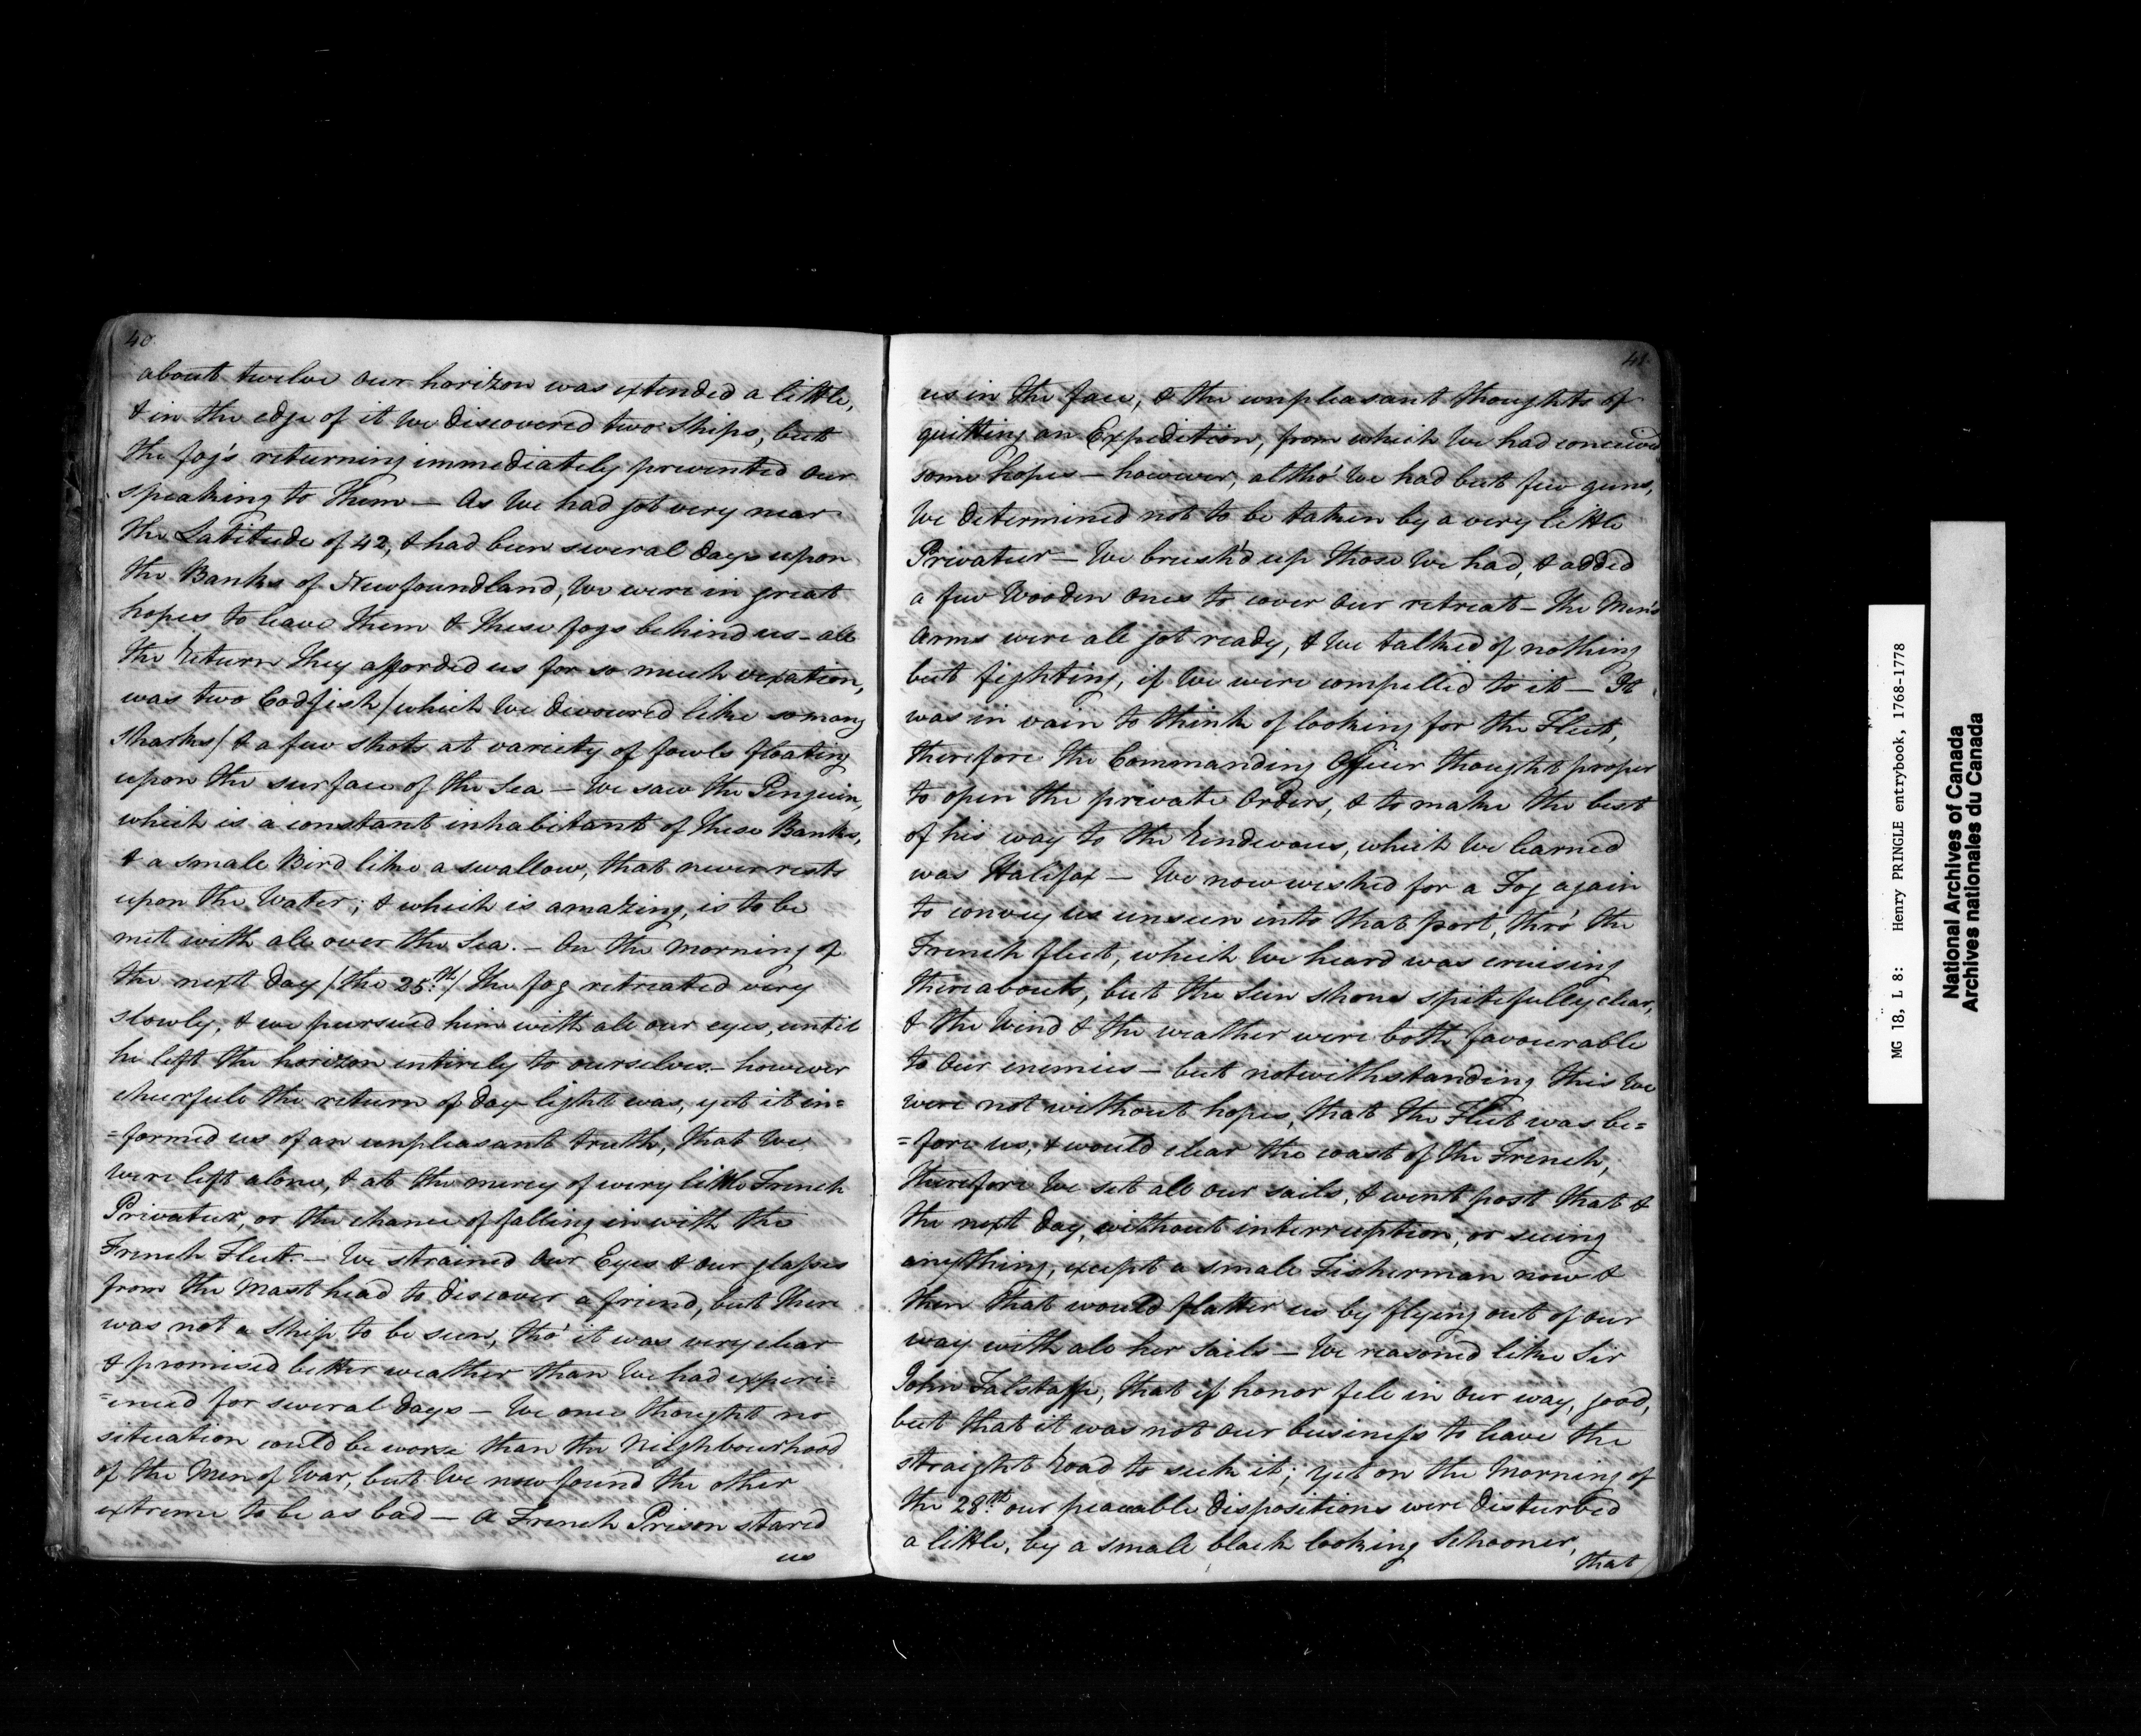 40
about twelve our horizon was extended a little,
& in the edge of it We discovered two Ships, but
the fog's returning immediately prevented our
speaking to Them — As We had got very near
the Latitude of 42, & had been several days upon
the Banks of Newfoundland, We were in great
hopes to leave Them & These fogs behind us — all
the return They afforded us for so much vexation,
was two Codfish / which We devoured like so many
Sharks / & a few shots at variety of fowls floating
upon the surface of the Sea — We saw the Penguin,
which is a constant inhabitant of These Banks,
& a small Bird like a swallow, that never rests
upon the Water; & which is amazing, is to be
met with all over the Sea. — On the Morning of
the next day / the 25th / The fog retreated very
slowly, & we pursued him with all our eyes, until
he left the horizon entirely to ourselves — however
chearfull the return of day light was, yet it in=
=formed us of an unpleasant truth, that We
were left alone, & at the mercy of every little French
Privateer, or the chance of falling in with the
French Fleet. — We strained Our Eyes & our glasses
from the Mast head to discover a friend, but There
was not a Ship to be seen, tho' it was very clear
& promised better weather than We had experi=
=enced for several days — We once thought no
situation could be worse than the Neighbourhood
of the Men of War, but We now found the other
extreme to be as bad — A French Prison stared
us
41
us in the face, & the unpleasant thoughts of
quitting an Expedition, from which We had conceived
some hopes — however, altho' We had but few guns,
We determined not to be taken by a very little
Privateer — We brush'd up those We had, & added
a few Wooden Ones to cover Our retreat — The Men's
Arms were all got ready, & We talked of nothing
but fighting, if We were compelled to it — It
was in vain to think of looking for the Fleet,
therefore the Commanding Officer thought proper
to open the private Orders, & to make the best
of his way to the Rendevous, which We learned
was Halifax — We now wished for a Fog again
to convey us unseen into that port, thro' the
French fleet, which We heard was cruising
thereabouts, but the Sun shone spitefully clear,
& the Wind & the weather were both favourable
to Our enemies — but notwithstanding This We
were not without hopes, that the Fleet was be=
=fore us, & would clear the coast of the French,
therefore We set all our sails, & went post that &
the next day, without interruption, or seeing
anything, except a small Fisherman now &
then that would flatter us by flying out of our
way with all her Sails — We reasoned like Sir
John Falstaffe, that if honor fell in Our way, good,
but that it was not Our business to leave the
straight Road to seek it; yet on the Morning of
the 28th our peaceable dispositions were disturbed
a little, by a small black looking Schooner,
that
MG 18, L 8: Henry PRINGLE entrybook, 1768-1778
National Archives of Canada
Archives nationales du Canada